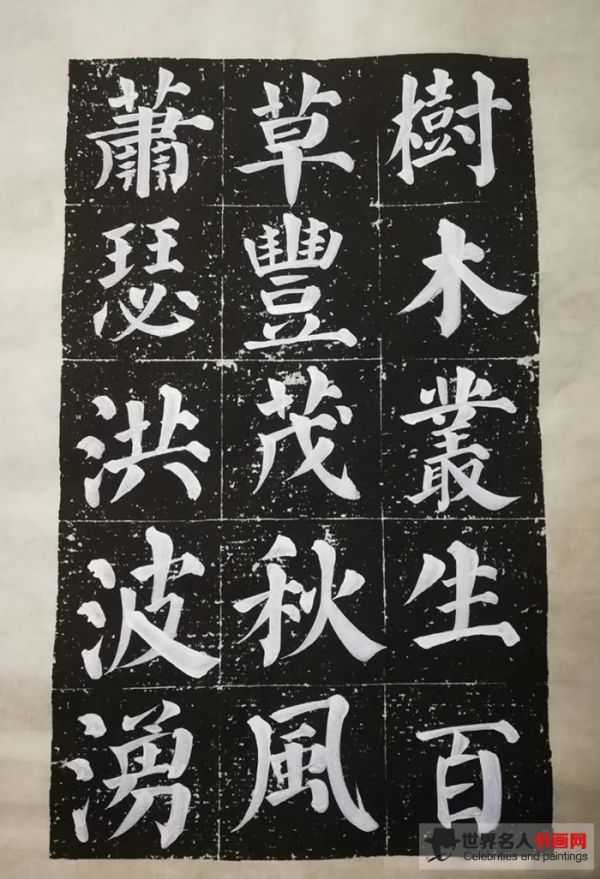 樹木叢生百
草豐茂秋風
蕭瑟洪波湧
世界名人书画网
Celebrities and paintings